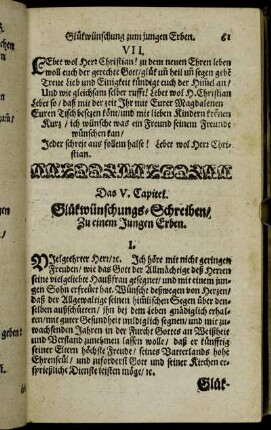 Glükwünschung zum jungen Erben. 61
VII.
LEbet wol Herr Christian! zu dem neuen Ehren leben
woll euch der gerechte Gott/ glük uñ heil uñ segen gebẽ
Treue Lieb und Einigkeit kündigt euch der Him̃el an/
Und wie gleichsam selber rufft! Lebet wol H. Christian
Lebet so / daß mit der zeit Ihr mit Eurer Magdalenen
Euren Tisch besezen könt/ und mit lieben Kindern krönen
Kurz / ich wünsche was ein Freund seinem Freunde
wünschen kan /
Jeder schrei aus follem halse! Lebet wol Herr Chri-
stian.
Das V. Capitel.
Glükwünschungs-Schreiben/
Zu einem Jungen Erben.
I.
VIelgeehrter Herr/ ꝛc. Ich höre mit nicht geringen
Freuden/ wie das Gott der Allmächtige deß Herren
seine vielgeliebte Haußfrau gesegnet/ und mit einem jun-
gen Sohn erfreuet hat. Wünsche deßwegen von Herzen/
daß der Allgewaltige seinen himlischen Segen über den-
selben außschütten/ ihn bei dem Leben gnädiglich erhal-
ten/ mit guter Gesundheit mildiglich segnen/ und mit zu-
wachsenden Jahren in der Furcht Gottes an Weißheit
und Verstand zunehmen lassen wolle/ daß er künfftig
seiner Eltern höchste Freude/ seines Vatterlands hohe
Ehrenseul/ und zuforderst Gott und seiner Kirchen er-
sprießliche Dienste leisten möge/ ꝛc.
Glük-